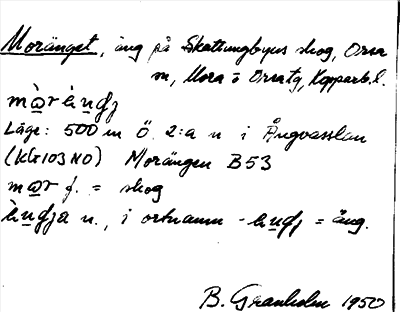 Moränget, äng på Skattungbyns skog, Orsa
sn, Mora o Orsa tg, Kopparb.l.
Läge: 500 m Ö. 2:a n i Ångvasslan
(Kt 103 NO) Morängen B53
f. = skog
n., i ortnamn = äng.
B. Granholm 1950